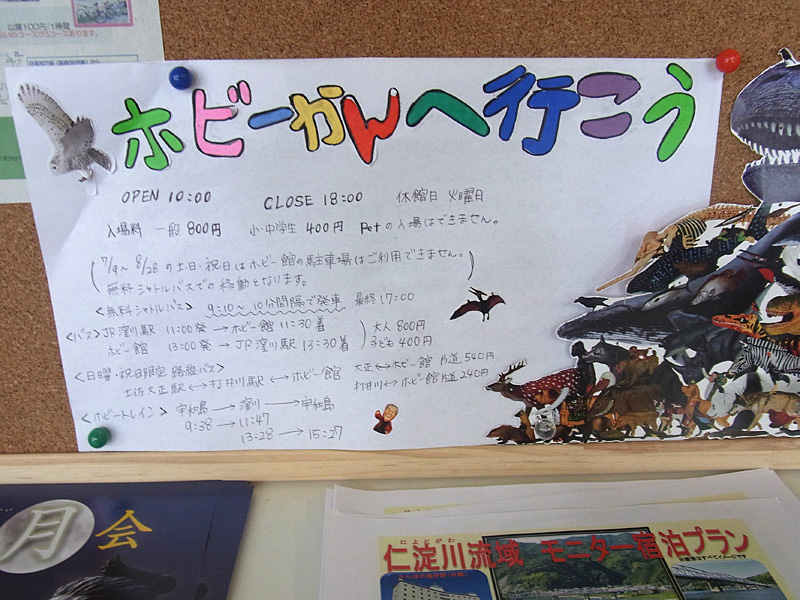 公園100円/1時間
ホビーかんへ行こう
OPEN 10:00 CLOSE 18:00 休館日 火曜日
入場料 一般 800円 小・中学生 400円 Petの入場はできません。
(7/9~8/28の土日・祝日はホビー館の駐車場はご利用できません。
無料シャトルバスでの移動となります。)
<無料シャトルバス> 9:10~10分間隔で発車 最終17:00
<バス> JR窪川駅 11:00発 → ホビー館 11:30着
ホビー館 13:00発 → JR窪川駅 13:30着
大人 800円
子ども 400円
<日曜・祝日限定 路線バス>
土佐大正駅 ↔ 打井川駅 ↔ ホビー館
大正 ↔ ホビー館 片道 540円
打井川 ↔ ホビー館 片道 240円
<ホビートレイン> 宇和島 → 窪川 → 宇和島
9:38 → 11:47
13:28 → 15:27
月会
によどがわ
仁淀川流域 モニター宿泊プラン